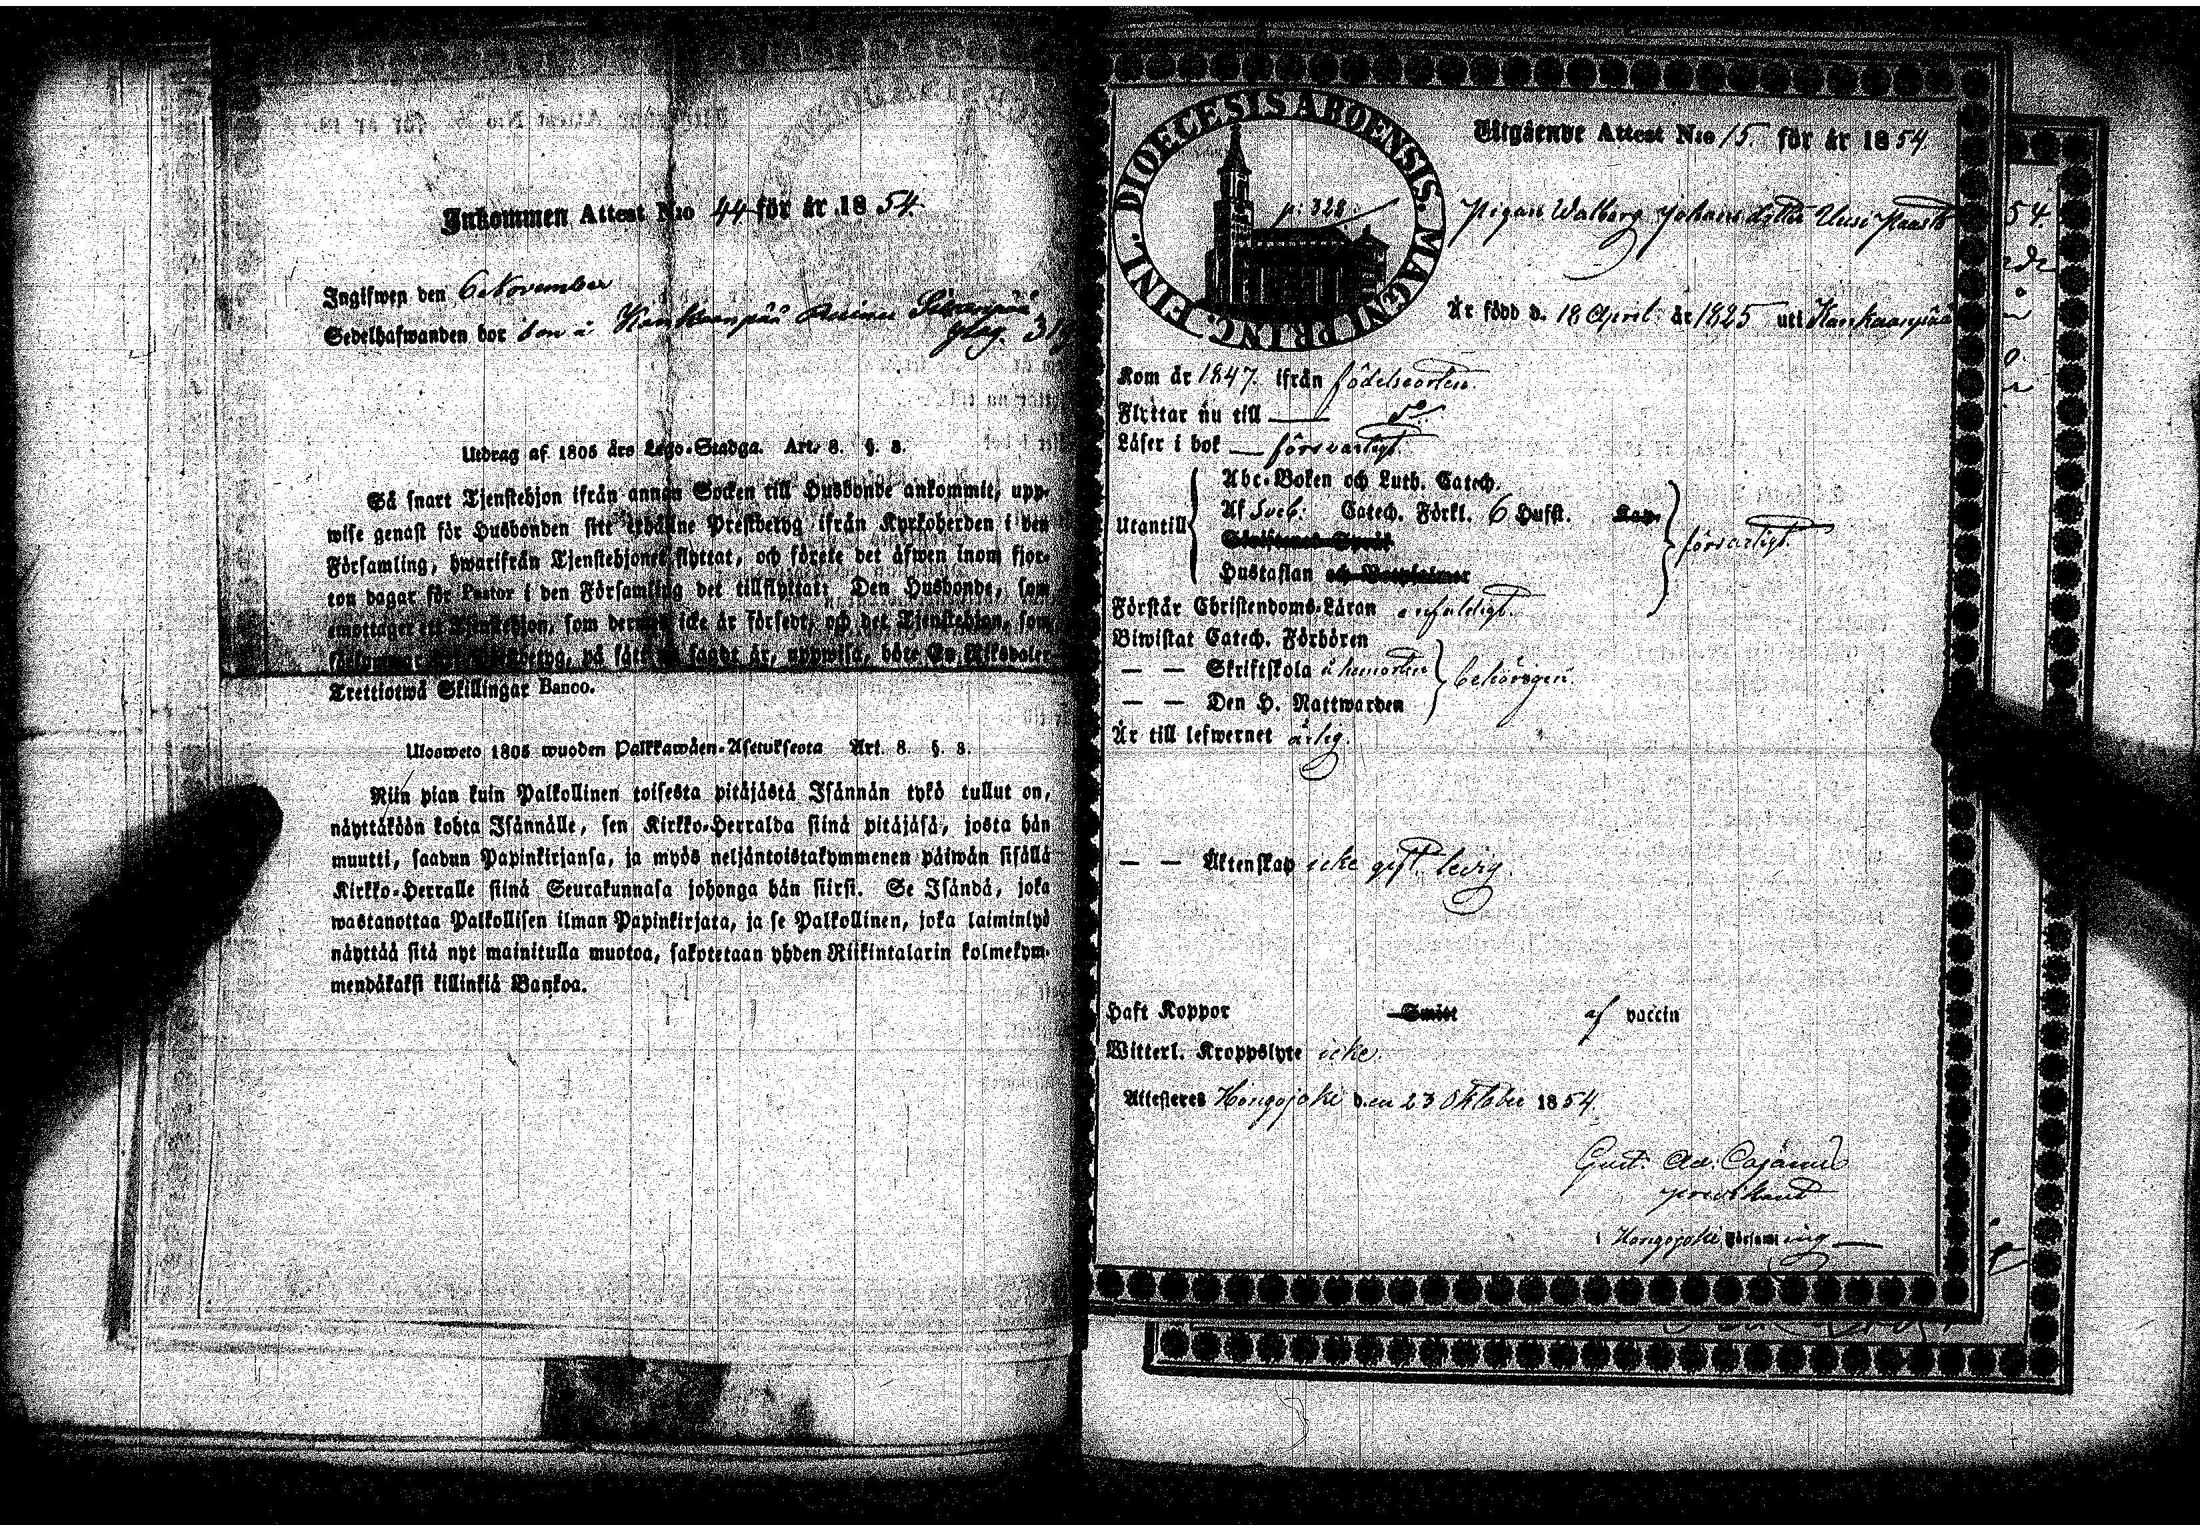 Inkommen Attest N:o 44 för år 1854.
Ingifwen den 6 November
Sedelhafwanden bor
Utdrag af 1805 års Lego-Stadga. Art. 8. §. 8.
Så snart Tjenstehjon ifrån annan Socken till Husbonde ankommit, upp-
wise genast för Husbonden sitt erhållne Prestbetyg ifrån Kyrkoherden i den
Församling, hwarifrån Tjenstehjonet flyttat, och förete det äfwen inom fjor-
ton dagar för Pastor i den Församling det tillflyttat; Den Husbonde, som
emottager ett Tjenstehjon, som dermed icke är försedt, och det Tjenstehjon, som
sagdt är, uppwisa, böte En Riksdaler
Trettiotwå Skillingar Banco.
Ulosweto 1805 wuoden Palkkawäen-Asetuksesta Art. 8. §. 8.
Niin pian kuin Palkollinen toisesta pitäjästä Isännän tykö tullut on,
näyttäköön kohta Isännälle, sen Kirkko-Herralda siinä pitäjäsä, josta hän
muutti, saadun Papinkirjansa, ja myös neljäntoistakymmenen päiwän sisällä
Kirkko-Herralle siinä Seurakunnasa johonga hän siirsi. Se Isändä, joka
wastanottaa Palkollisen ilman Papinkirjata, ja se Palkollinen, joka laiminlyö
näyttää sitä nyt mainitulla muotoa, sakotetaan yhden Riikintalarin kolmekym-
mendäkaksi killinkiä Bankoa.
DIOECESIS ABOENSIS. MAGNI PRING. FINL.
p: 328
Utgående Attest N:o 15. för år 1854.
Pigan Walborg Johansdotter Uusi
Är född d. 18 April år 1825 uti Kankaanpää
Kom år 1847. ifrån födelseorten.
Flyttar nu till — do
Läser i bok — försvarligt.
Utantill
Abc-Boken och Luth. Catech.
Af Sveb: Catech. Förkl. 6 Hufst.
Hustaflan
försvarligt.
Förstår Christendoms-Läran enfaldigt.
Biwistat Catech. Förhören
— — Skriftskola å hemorten
— — Den H. Nattwarden
behörigen.
Är till lefwernet ärlig.
— — Äktenskap icke gift. ledig.
Haft Koppor Smitt af vaccin
Witterl. Kroppslyte icke.
Attesteras Hongojoki den 23 Oktober 1854.
Gust. Ad. Cajanus
i Hongojoki Församling